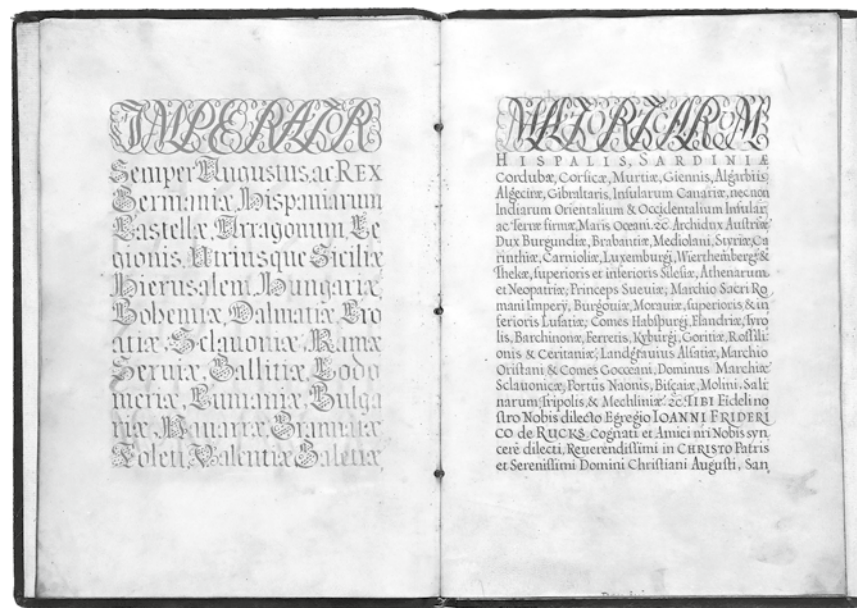 IMPERATOR
Semper Augustus, ac REX
Germaniæ, Hispaniarum
Castellæ, Arragonum, Le
gionis, Utriusque Siciliæ
Hierusalem, Hungariæ,
Bohemiæ, Dalmatiæ, Cro
atiæ, Sclavoniæ, Ramæ
Serviæ, Gallitiæ, Lodo
meriæ, Cumaniæ, Bulga
riæ, Navarræ, Granatæ
Toleti, Valentiæ, Galetiæ
MAIORICARUM
HISPALIS, SARDINIÆ
Cordubæ, Corsicæ, Murtiæ, Giennis, Algarbiis
Algeciræ, Gibraltaris, Insularum Canariæ, necnon
Indiarum Orientalium & Occidentalium Insular,
ac Terræ firmæ, Maris Oceani. &c. Archidux Austriæ
Dux Burgundiæ, Brabantiæ, Mediolani, Styriæ, Ca
rinthiæ, Carnioliæ, Luxemburgi, Wierthembergæ &
Thekæ, superioris et inferioris Silesiæ, Athenarum
et Neopatriæ; Princeps Sueuiæ; Marchio Sacri Ro
mani Imperÿ, Burgouiæ, Morauiæ, superioris & in
ferioris Lusatiæ; Comes Habspurgi, Flandriæ, Tyro
lis, Barchinonæ, Ferretis, Kyburgi, Goritiæ, Rossili
onis & Ceritaniæ; Landgrauius Alsatiæ, Marchio
Oristani & Comes Gocceani, Dominus Marchiæ
Sclauonicæ, Portus Naonis, Biscaiæ, Molini, Sali
narum, Tripolis, & Mechliniæ &c. TIBI Fideli no
stro Nobis dilecto Egregio IOANNI FRIDERI
CO de RUCKS Cognati et Amici nri Nobis syn
cerè dilecti, Reuerendissimi in CHRISTO Patris
et Serenissimi Domini Christiani Augusti, San